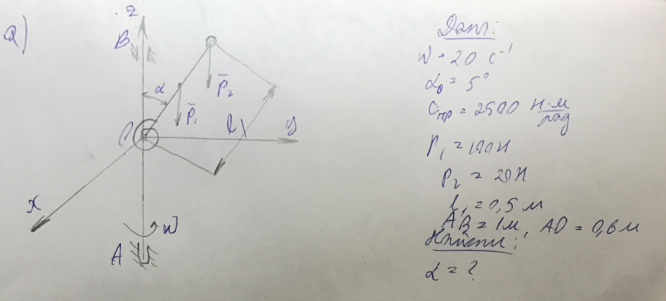 Q)
z
B
α
P̄₂
P̄₁
O
l
y
x
ω
A
Дано:
ω = 20 с⁻¹
α₀ = 5°
Cпр = 2500 Н·м/рад
P₂ = 20 Н
l = 0,5 м
AB = 1м, AO = 0,6 м
Найти:
α = ?